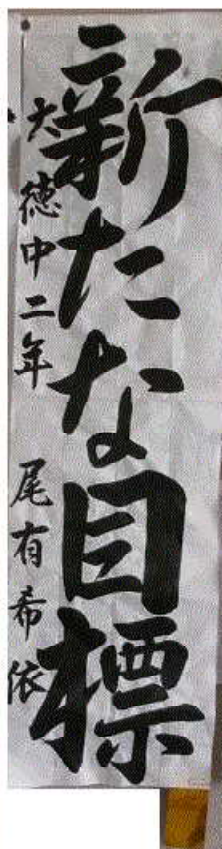 新たな目標
大徳中二年 尾有希依